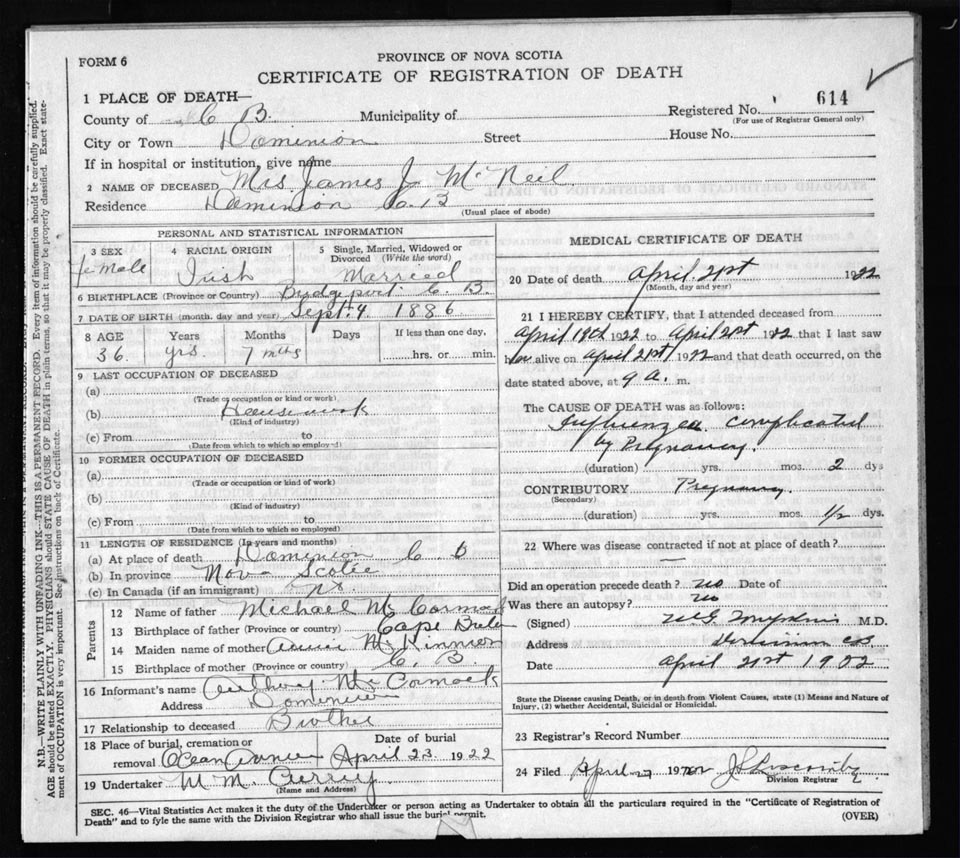 FORM 6
PROVINCE OF NOVA SCOTIA
CERTIFICATE OF REGISTRATION OF DEATH
1 PLACE OF DEATH—
Registered No. 614
(For use of Registrar General only)
County of C B. Municipality of
City or Town Dominion Street House No.
If in hospital or institution, give name
2 NAME OF DECEASED Mrs. James J McNeil
Residence Dominion C. B
(Usual place of abode)
PERSONAL AND STATISTICAL INFORMATION
3 SEX 4 RACIAL ORIGIN 5 Single, Married, Widowed or Divorced (Write the word)
female Irish Married
6 BIRTHPLACE (Province or Country) Bridgeport C. B.
7 DATE OF BIRTH (month, day and year) Sept. 4 1886
8 AGE Years Months Days If less than one day,
36. yrs. 7 mths hrs. or min.
9 LAST OCCUPATION OF DECEASED
(a)
(Trade or occupation or kind of work)
(b) Housework
(Kind of industry)
(c) From to
(Date from which to which so employed)
10 FORMER OCCUPATION OF DECEASED
(a)
(Trade or occupation or kind of work)
(b)
(Kind of industry)
(c) From to
(Date from which to which so employed)
11 LENGTH OF RESIDENCE (In years and months)
(a) At place of death Dominion C B
(b) In province Nova Scotia
(c) In Canada (if an immigrant)
Parents
12 Name of father Michael McCormack
13 Birthplace of father (Province or country) Cape Breton
14 Maiden name of mother Annie McKinnon
15 Birthplace of mother (Province or country) C. B.
16 Informant's name Anthony McCormack
Address Dominion
17 Relationship to deceased Brother
18 Place of burial, cremation or removal Date of burial
April 23 1922
19 Undertaker M M. Curry
(Name and Address)
MEDICAL CERTIFICATE OF DEATH
20 Date of death April. 21st 1922
(Month, day and year)
21 I HEREBY CERTIFY, that I attended deceased from
April 19th 1922 to April 21st 1922 that I last saw
her alive on April 21st 1922 and that death occurred, on the
date stated above, at 9 a. m.
The CAUSE OF DEATH was as follows:
Influenza complicated
by Pregnancy.
(duration) yrs. mos. 2 dys
CONTRIBUTORY Pregnancy.
(Secondary)
(duration) yrs. mos. 1/2 dys.
22 Where was disease contracted if not at place of death?
—
Did an operation precede death? no Date of
Was there an autopsy? no
(Signed) M.D.
Address Dominion CB
Date April 21st 1922
State the Disease causing Death, or in death from Violent Causes, state (1) Means and Nature of
Injury, (2) whether Accidental, Suicidal or Homicidal.
23 Registrar's Record Number
24 Filed April 192
Division Registrar
SEC. 46—Vital Statistics Act makes it the duty of the Undertaker or person acting as Undertaker to obtain all the particulars required in the "Certificate of Registration of
Death" and to fyle the same with the Division Registrar who shall issue the burial permit.
(OVER)
N.B.—WRITE PLAINLY WITH UNFADING INK—THIS IS A PERMANENT RECORD. Every item of information should be carefully supplied.
AGE should be stated EXACTLY. PHYSICIANS should STATE CAUSE OF DEATH in plain terms, so that it may be properly classified. Exact state-
ment of OCCUPATION is very important. See instructions on back of Certificate.